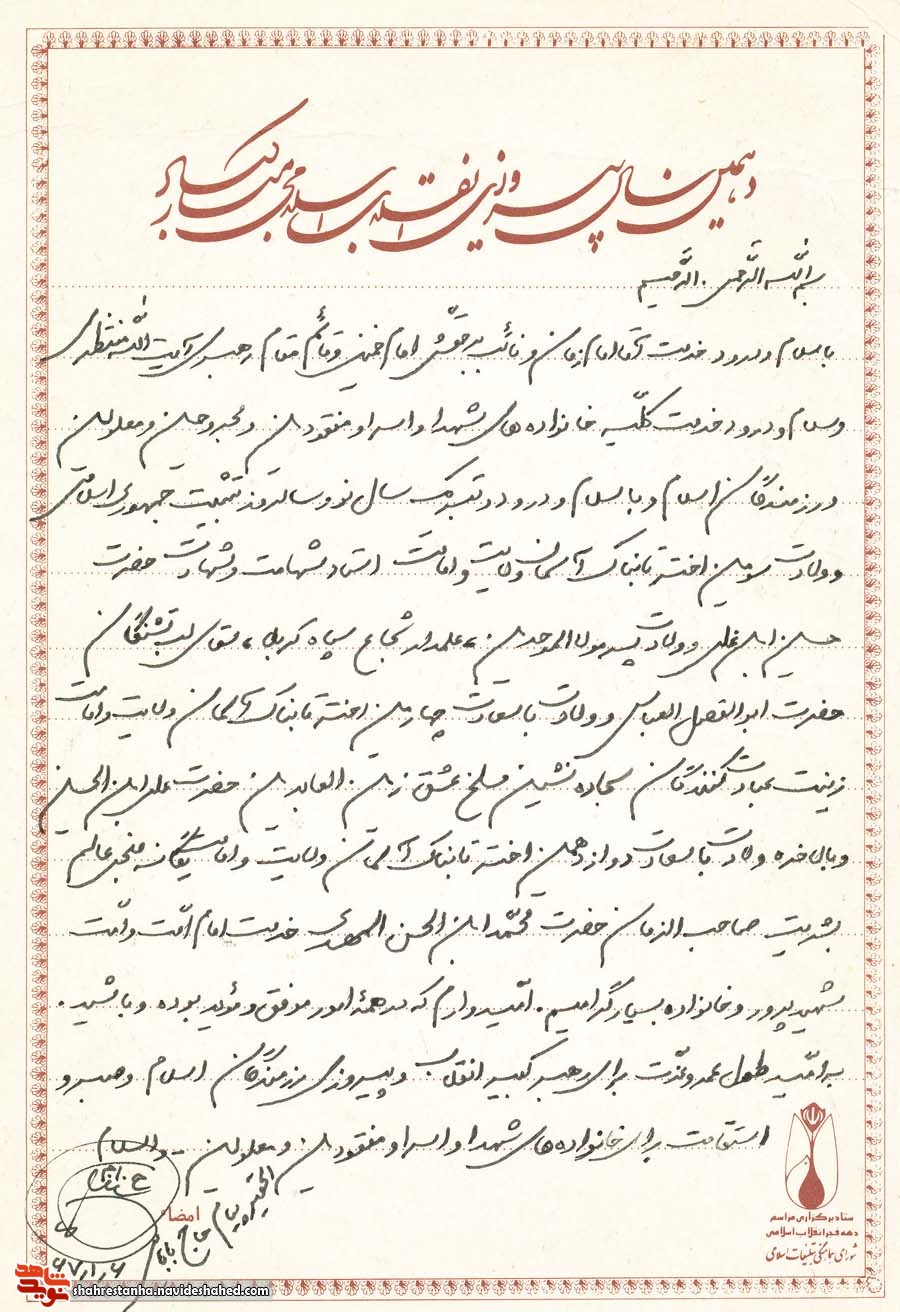 دهمین سال پیروزی انقلاب اسلامی مبارکباد
بسم الله الرحمن الرحیم
باسلام ودرود خدمت آقا امام زمان و نائب برحقش امام خمینی وقائم مقام رهبری آیت الله منتظری
وسلام ودرود خدمت کلّیه خانواده های شهدا و اسرا و مفقودین و مجروحین و معلولین
ورزمندگان اسلام و با سلام و درود و تبریک سال نو و سالروز تثبیت جمهوری اسلامی
و ولادت سومین اختر تابناک آسمان ولایت و امامت استاد شهامت و شهادت حضرت
حسین ابن علی و ولادت پسر مولا الموحدین، علمدار شجاع سپاه کربلا، سقای لب تشنگان
حضرت ابوالفضل العباس و ولادت باسعادت چهارمین اختر تابناک آسمان ولایت و امامت
زینت عبادت کنندگان سجاده نشین مسلخ عشق زین العابدین حضرت علی ابن الحسین
وبالاخره ولادت باسعادت دوازدهمین اختر تابناک آسمان ولایت و امامت یگانه منجی عالم
بشریت صاحب الزمان حضرت محمّد ابن الحسن المهدی خدمت امام امّت و امّت
شهید پرور و خانواده بسیار گرامیم. امّیدوارم که در همهٔ امور موفق و مؤید بوده و باشید.
به امّید طول عمر و عزّت برای رهبر کبیر انقلاب و پیروزی رزمندگان اسلام و صبر و
استقامت برای خانواده های شهدا و اسرا و مفقودین و معلولین - والسلام
امضاء
الحقیر پیام حاج بابائی
۶۷/۱/۶
ستاد برگزاری مراسم
دهه فجر انقلاب اسلامی
شورای هماهنگی تبلیغات اسلامی
نوید شاهد
shahrestanha.navideshahed.com